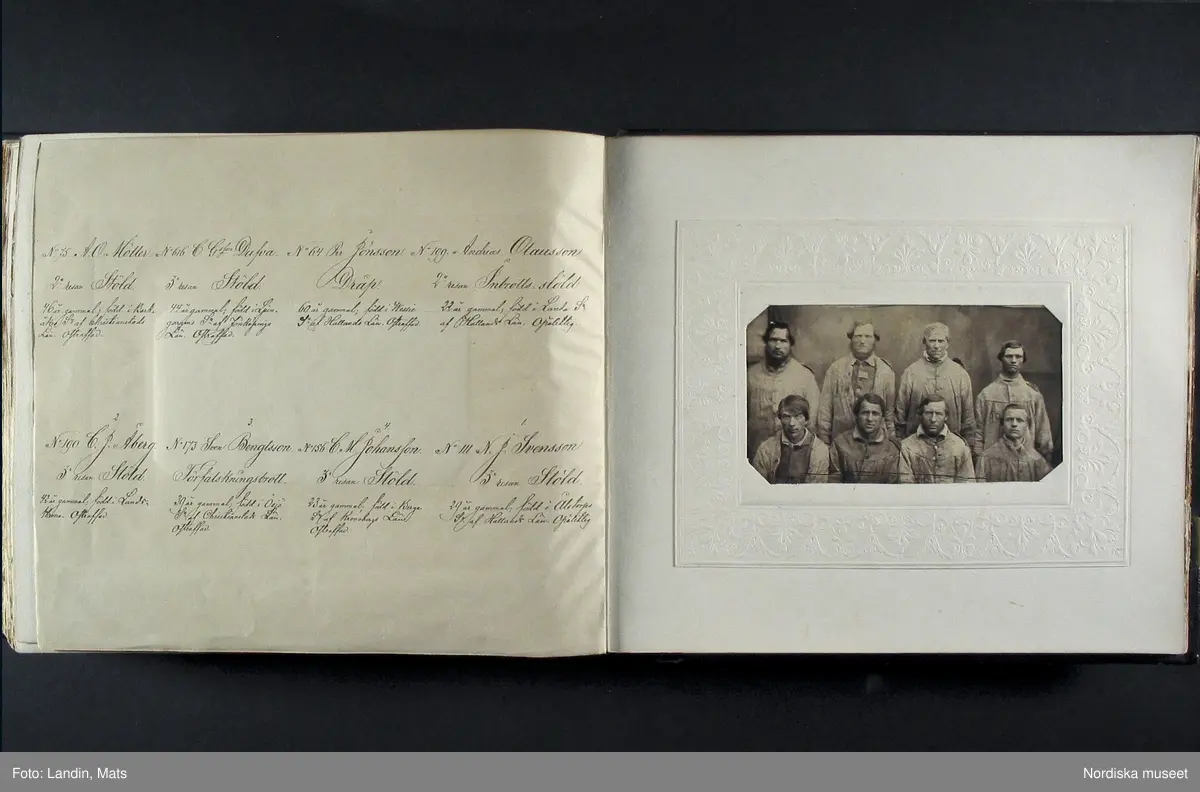 No 75 A. O. Möller
2a resan Stöld.
46 år gammal, född i
Sn af Christianstads
Län. Ostraffad.
No 616 C Gson Dufva.
3e resan Stöld
44 år gammal, född i
Sn af Jönköpings
Län. Ostraffad.
No 64 Per Jönsson
Dråp.
60 år gammal, född i
Sn af Hallands Län. Ostraffad
No 109. Andrias Olausson
2a resan Inbrotts stöld
32 år gammal, född i Landa Sn
af Hallands Län.
2
No 190 C. J. Åberg
3e resan Stöld.
år gammal, född i Lands-
krona. Ostraffad
3
No 173 Sven Bengtsson.
Förfalskningsbrott.
39 år gammal, född i
Sn af Christianstads Län.
Ostraffad
4
No 156 C. M. Johansson.
3e resan Stöld.
23 år gammal, född i
Sn af Kronobergs Län
Ostraffad
1
No 111 N. J. Svensson
3e resan Stöld.
29 år gammal, född i
Sn af Hallands Län.
Foto: Landin, Mats
Nordiska museet